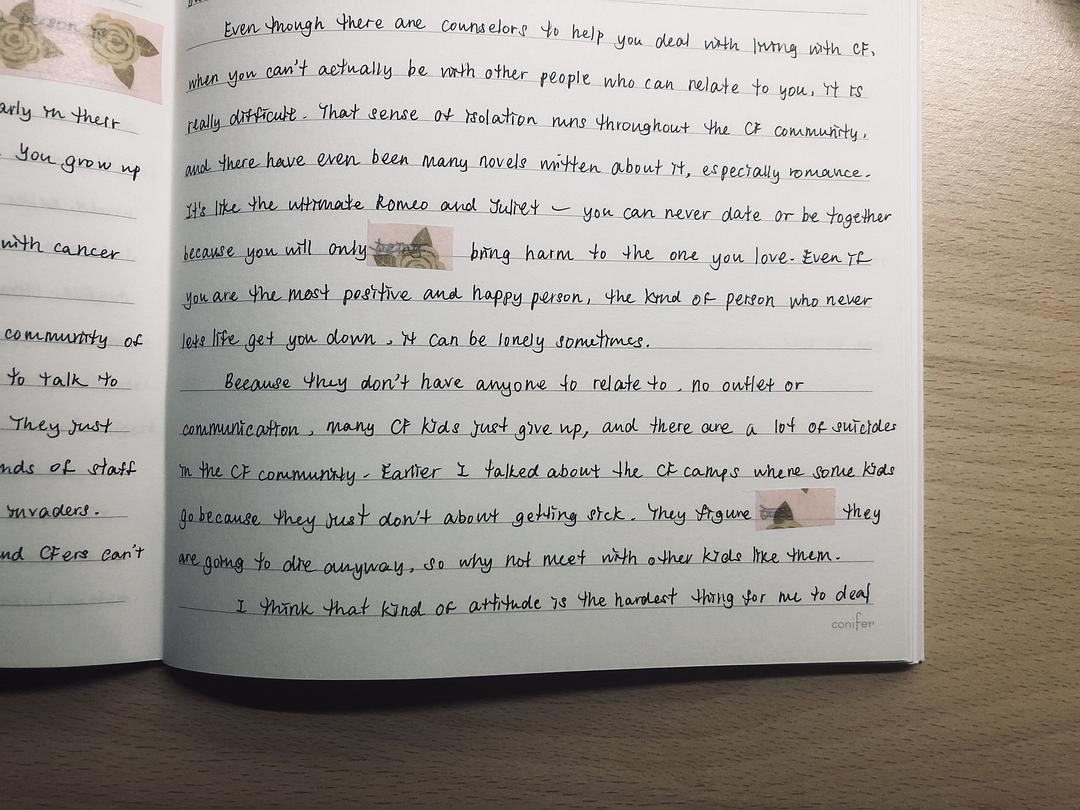 person is
arly in their
. You grow up
with cancer
community of
to talk to
They just
nds of staff
invaders.
nd CFers can't
Even though there are counselors to help you deal with living with CF,
when you can't actually be with other people who can relate to you, it is
really difficult. That sense of isolation runs throughout the CF community,
and there have even been many novels written about it, especially romance.
It's like the ultimate Romeo and Juliet — you can never date or be together
because you will only bring harm to the one you love. Even if
you are the most positive and happy person, the kind of person who never
lets life get you down, it can be lonely sometimes.
Because they don't have anyone to relate to, no outlet or
communication, many CF kids just give up, and there are a lot of suicides
in the CF community. Earlier I talked about the CF camps where some kids
go because they just don't about getting sick. They figure they
are going to die anyway, so why not meet with other kids like them.
I think that kind of attitude is the hardest thing for me to deal
conifer